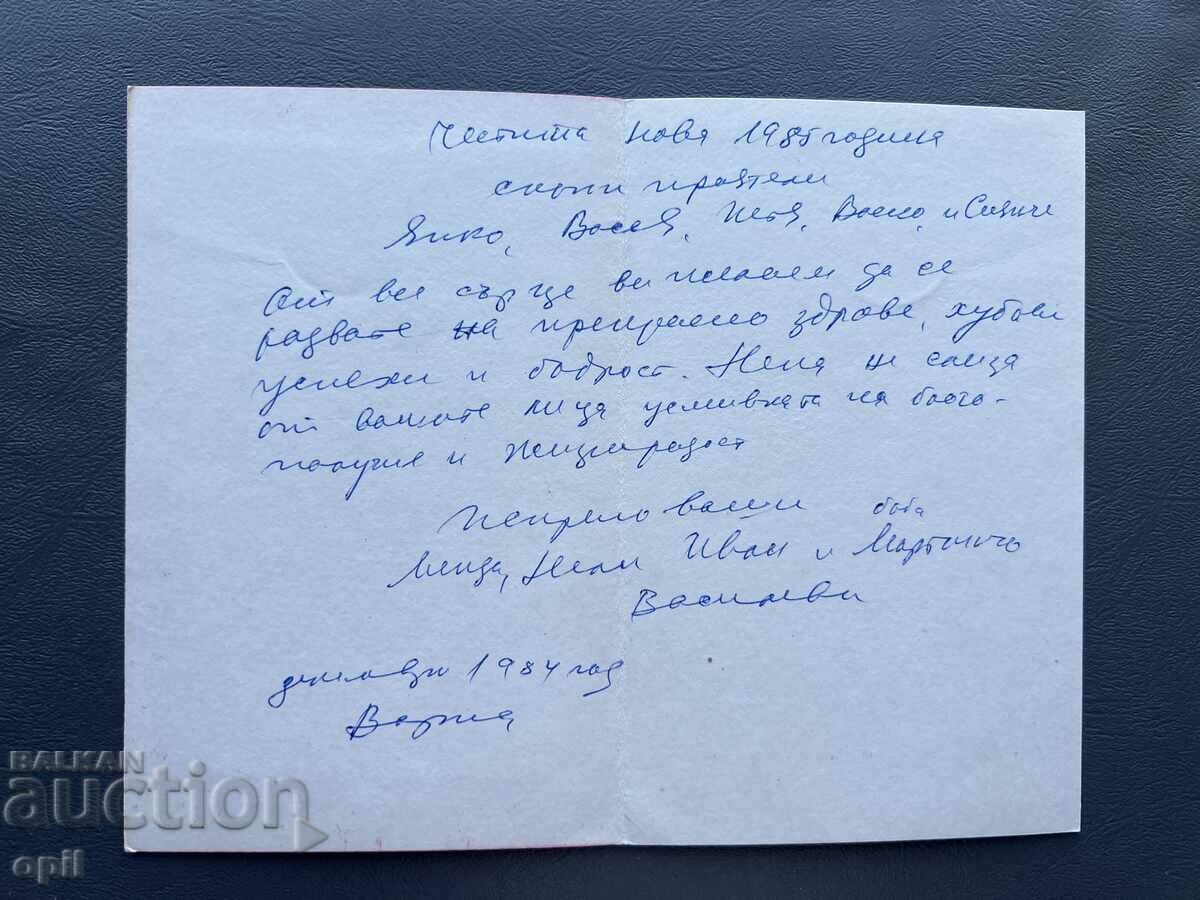 Честита нова 1985 година
скъпи приятели
Янко, Васея, Иво, и
От все сърце ви желаем да се
радвате на прекрасно здраве, хубави
успехи и бодрост. Нека не слиза
от вашите лица усмивката на благо-
получия и жизнерадост
Искрено ваши баба
Нели Иван и Мартинчо
Василеви
декември 1984 год
Варна
BALKAN
auction
opil